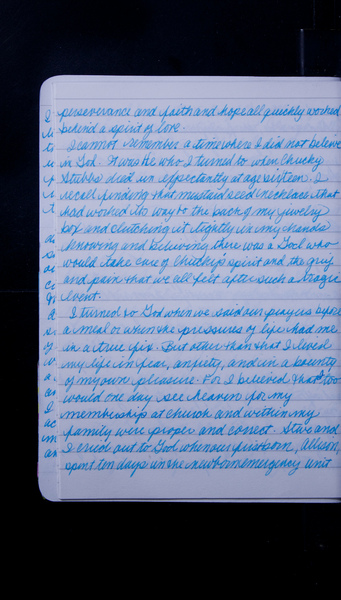 perseverance and faith and hope all quickly worked
behind a spirit of love.
I cannot remember a time where I did not believe
in God. It was He who I turned to when Chucky
Stubbs died unexpectantly at age sixteen. I
recall finding that mustard seed necklace that
had worked its way to the back of my jewelry
box and clutching it tightly in my hands
knowing and believing there was a God who
would take care of Chucky's spirit and the grief
and pain that we all felt after such a tragic
event.
I turned to God when we said our prayers before
a meal or when the pressures of life had me
in a true fix. But other than that I lived
my life in fear, anxiety, and in a bounty
of my own pleasure. For I believed that I too
would one day see heaven for my
membership at church and within my
family were proper and correct. Steve and
I cried out to God when our firstborn, Allison,
spent ten days in the newborn emergency unit